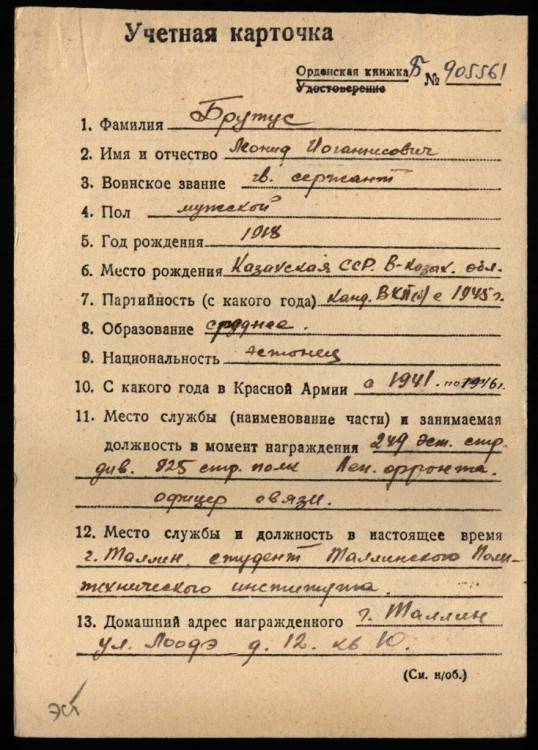 Учетная карточка
Орденская книжка Б № 905561
Удостоверение
1. Фамилия Брутус
2. Имя и отчество Леонид Иоганнисович
3. Воинское звание гв. сержант
4. Пол мужской
5. Год рождения 1918
6. Место рождения Казахская ССР. В-Казах. обл.
7. Партийность (с какого года) канд. ВКП(б) с 1945 г.
8. Образование среднее.
9. Национальность эстонец
10. С какого года в Красной Армии с 1941. по 1946 г.
11. Место службы (наименование части) и занимаемая
должность в момент награждения 249 эст. стр.
див. 925 стр. полк Лен. фронта.
офицер связи.
12. Место службы и должность в настоящее время
г. Таллин, студент Таллинского Поли-
технического института.
13. Домашний адрес награжденного г. Таллин
ул. Лоодэ д. 12. кв 10.
(См. н/об.)
эст